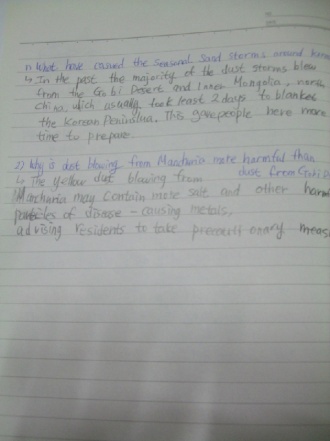 1) What have caused the seasonal sand storms around Korea
↳ In the past the majority of the dust storms blew
from the Gobi Desert and Inner Mongolia, north
China, wich usually took least 2 days to blanket
the Korean Peninslua. This gave people here more
time to prepare.
2) Why is dust blowing from Manchuria more harmful than
dust from Gobi D
↳ The yellow dust blowing from
Manchuria may contain more salt and other harm
particles of disease - causing metals,
advising residents to take precautionary meas